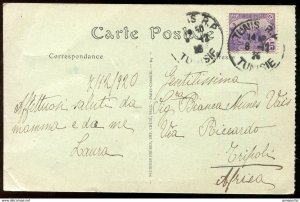 Carte Postale
TUNIS R.P.
TUNISIE
Correspondance
7/12/920
Affettuosi saluti da
mamma e da me
Laura
Gentilissima
Sig.ra Bianca Nunes Vais
Via Ricardo
Tripoli
Africa